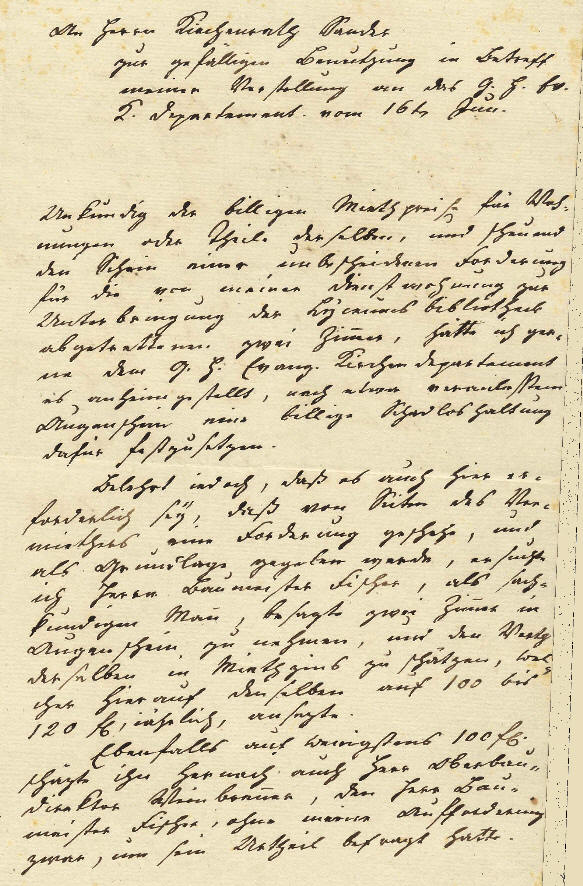 An Herrn Kirchenrath Sander
zur gefälligen Benutzung in Betreff
meiner Vorstellung an das G. H. Ev.
K. Departement. vom 16t Jun.
Unkundig der billigen Miethpreise für Woh-
nungen oder Theile derselben, und scheuend
den Schein einer unbescheidenen Forderung
für die von meiner Dienstwohnung zur
Unterbringung der Lyceumsbibliothek
abgetrettenen zwei Zimmer, hätte ich ger-
ne dem G. H. Evang. Kirchendepartement
es anheimgestellt, nach einem veranlaßten
Augenschein eine billige Schadloshaltung
dafür festzusetzen.
Belehrt jedoch, daß es auch hier er-
forderlich seÿ, daß von Seiten des Ver-
miethers eine Forderung geschehe, und
als Grundlage gegeben werde, ersuchte
ich Herrn Baumeister Fischer, als sach-
kundigen Mann, besagte zwei Zimmer in
Augenschein zu nehmen, und den Werth
derselben in Miethzins zu schätzen, wel-
cher hierauf denselben auf 100 bis
120 fl, jährlich, ansagte.
Ebenfalls auf wenigstens 100 fl.
schäzte ihn hernach auch Herr Oberbau-
direktor Weinbrenner, den Herr Bau-
meister Fischer, ohne meine Aufforderung
zwar, um sein Urtheil befragt hatte.